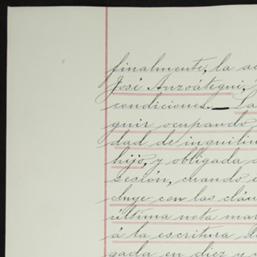 finalmente, la
José Anzoátegui,
condiciones._ La
guir ocupando
dad de inquili
hijo, y obligada
sesión, cuando
cluye con las cláu
última nota mar
á la escritura d
gada en diez y